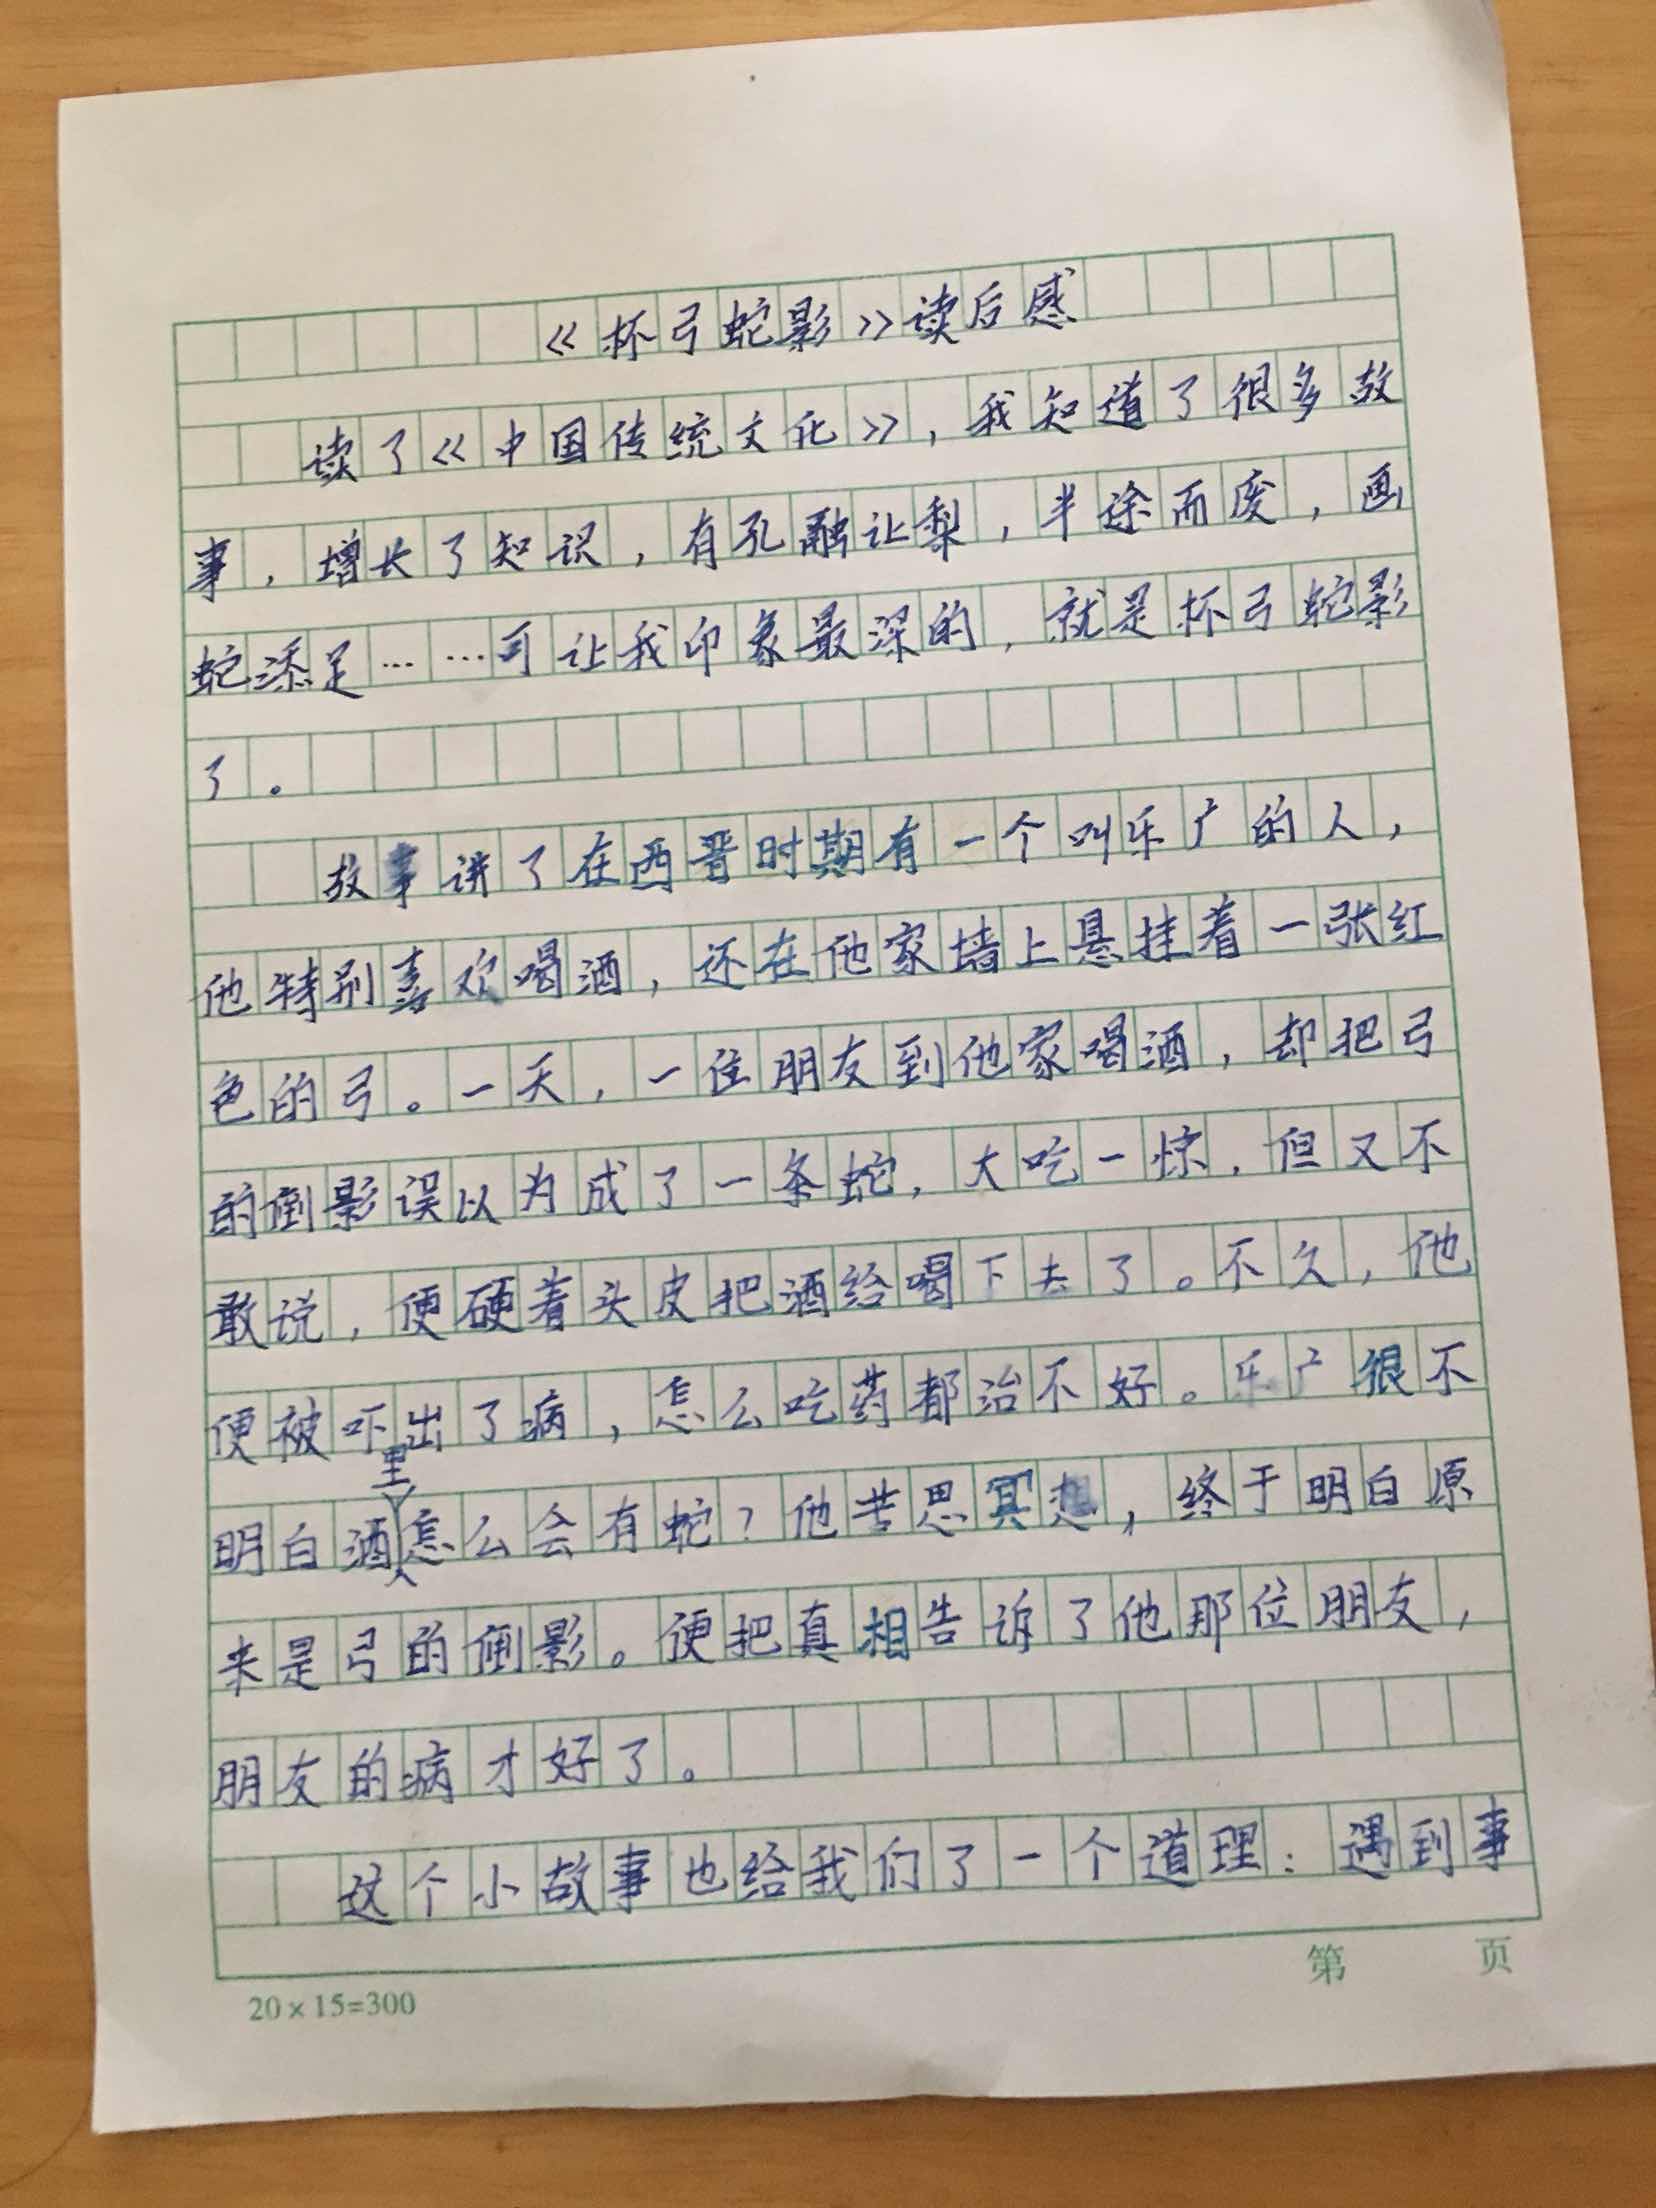 《杯弓蛇影》读后感
读了《中国传统文化》，我知道了很多故
事，增长了知识，有孔融让梨，半途而废，画
蛇添足……可让我印象最深的，就是杯弓蛇影
了。
故事讲了在西晋时期有一个叫乐广的人，
他特别喜欢喝酒，还在他家墙上悬挂着一张红
色的弓。一天，一位朋友到他家喝酒，却把弓
的倒影误以为成了一条蛇，大吃一惊，但又不
敢说，便硬着头皮把酒给喝下去了。不久，他
便被吓出了病，怎么吃药都治不好。乐广很不
明白酒里怎么会有蛇？他苦思冥想，终于明白原
来是弓的倒影。便把真相告诉了他那位朋友，
朋友的病才好了。
这个小故事也给我们了一个道理：遇到事
第 页
20×15=300